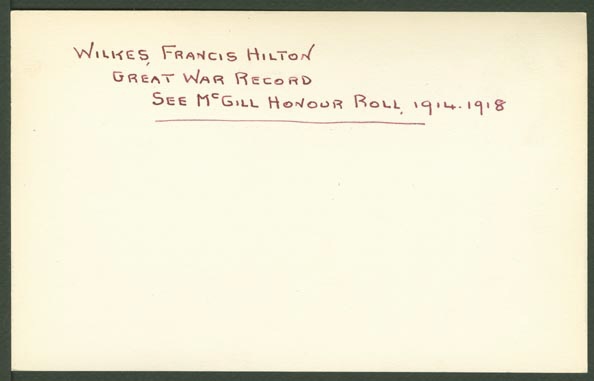 Wilkes, Francis Hilton
Great War Record
See McGill Honour Roll, 1914-1918